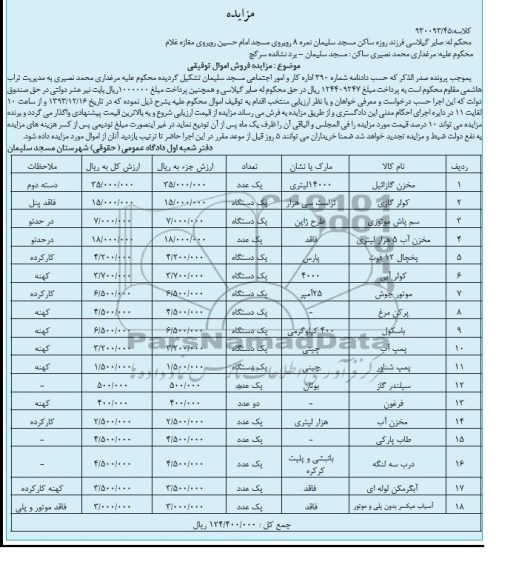 مزایده
کلاسه: ۹۳۰۰۹۳/۴۵
محکم له: صابر گیلاسی فرزند روزه ساکن مسجد سلیمان نمره ۸ روبروی مسجد امام حسین روبروی مغازه غلام
محکوم علیه: مرغداری محمد نصیری ساکن: مسجد سلیمان - برد نشانده سر گچ
موضوع: مزایده فروش اموال توقیفی
بموجب پرونده صدر الذکر که حسب دادنامه شماره ۳۹۰ اداره کار و امور اجتماعی مسجد سلیمان تشکیل گردیده محکوم علیه مرغداری محمد نصیری به مدیریت تراب
هاشمی مقاوم محکوم است به پرداخت مبلغ ۱۲۴۴۰۹۲۴۷ ریال در حق محکوم له صابر گیلاسی و همچنین پرداخت مبلغ ۱۰۰۰۰۰۰ ریال بابت نیم عشر دولتی در حق صندوق
دولت که این اجرا حسب درخواست و معرفی خواهان و با نظر ارزیابی منتخب اقدام به توقیف اموال محکوم علیه بشرح ذیل نموده که در تاریخ ۱۳۹۳/۱۲/۱۶ و از ساعت ۱۰
لغایت ۱۱ در دایره اجرای احکام مدنی این دادگستری و از طریق مزایده به فروش می رساند مزایده از قیمت ارزیابی شروع و به بالاترین قیمت پیشنهادی واگذار می گردد و برنده
مزایده می تواند ۱۰ درصد قیمت مورد مزایده را فی المجلس و الباقی آن را ظرف یک ماه پس از آن تودیع نماید در غیر اینصورت مبلغ تودیعی پس از کسر هزینه های مزایده
به نفع دولت ضبط و مزایده تجدید خواهد شد ضمنا خریداران می توانند ۵ روز قبل از موعد مقرر در این اجرا حاضر تا ترتیب بازدید آنان از اموال مورد مزایده داده شود.
دفتر شعبه اول دادگاه عمومی (حقوقی) شهرستان مسجد سلیمان
ردیف نام کالا مارک یا نشان تعداد ارزش جزء به ریال ارزش کل به ریال ملاحظات
۱ مخزن گازائیل ۱۴۰۰۰لیتری یک عدد ۳۵/۰۰۰/۰۰۰ ۳۵/۰۰۰/۰۰۰ دسته دوم
۲ کولر گازی تراست سی هزار یک دستگاه ۱۵/۰۰۰/۰۰۰ ۱۵/۰۰۰/۰۰۰ فاقد پنل
۳ سم پاش موتوری طرح ژاپن یک دستگاه ۷/۰۰۰/۰۰۰ ۷/۰۰۰/۰۰۰ در حدنو
۴ مخزن آب ۵ هزار لیتری فاقد یک عدد ۱۸/۰۰۰/۰۰۰ ۱۸/۰۰۰/۰۰۰ درحدنو
۵ یخچال ۱۲ فوت پارس یک دستگاه ۴/۲۰۰/۰۰۰ ۴/۲۰۰/۰۰۰ کارکرده
۶ کولر آبی ۴۰۰۰ یک دستگاه ۳/۷۰۰/۰۰۰ ۳/۷۰۰/۰۰۰ کهنه
۷ موتور جوش ۲۵آمپر یک دستگاه ۶/۵۰۰/۰۰۰ ۶/۵۰۰/۰۰۰ کارکرده
۸ پرکن مرغ - یک دستگاه ۴/۵۰۰/۰۰۰ ۴/۵۰۰/۰۰۰ کهنه
۹ باسکول ۴۰۰ کیلوگرمی یک دستگاه ۶/۵۰۰/۰۰۰ ۶/۵۰۰/۰۰۰ کهنه
۱۰ پمپ آب چینی یک دستگاه ۳/۲۰۰/۰۰۰ ۳/۲۰۰/۰۰۰ کهنه
۱۱ پمپ شناور چینی یک دستگاه ۱/۵۰۰/۰۰۰ ۱/۵۰۰/۰۰۰ کهنه
۱۲ سیلندر گاز بوتان یک عدد ۵۰۰/۰۰۰ ۵۰۰/۰۰۰ -
۱۳ فرغون - دو عدد ۴۰۰/۰۰۰ ۴۰۰/۰۰۰ کهنه
۱۴ مخزن آب هزار لیتری یک عدد ۲/۵۰۰/۰۰۰ ۲/۵۰۰/۰۰۰ کارکرده
۱۵ طاب پارکی - یک عدد ۴/۵۰۰/۰۰۰ ۴/۵۰۰/۰۰۰ -
۱۶ درب سه لنگه بانبشی و پلیت کرکره یک عدد ۴/۵۰۰/۰۰۰ ۴/۵۰۰/۰۰۰ -
۱۷ آبگرمکن لوله ای فاقد یک عدد ۳/۵۰۰/۰۰۰ ۳/۵۰۰/۰۰۰ کهنه کارکرده
۱۸ آسیاب میکسر بدون پلی و موتور فاقد یک عدد ۳/۰۰۰/۰۰۰ ۳/۰۰۰/۰۰۰ فاقد موتور و پلی
جمع کل: ۱۲۴/۴۰۰/۰۰۰ ریال
ParsNamadData